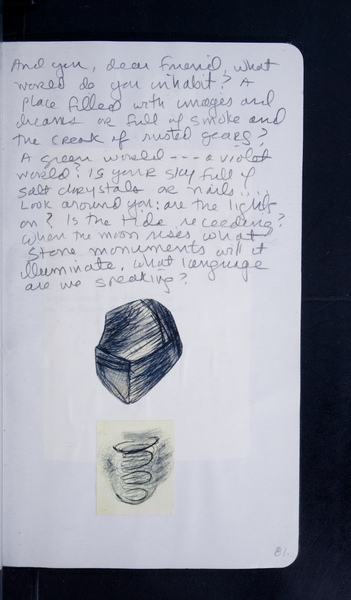 And you, dear friend, what
world do you inhabit? A
place filled with images and
dreams or full of smoke and
the creak of rusted gears?
A green world --- a violet
world? Is your sky full of
salt chrystals or nails....
Look around you: are the lights
on? Is the tide receeding?
When the moon rises what
Stone monuments will it
illuminate. What language
are we speaking?
81.